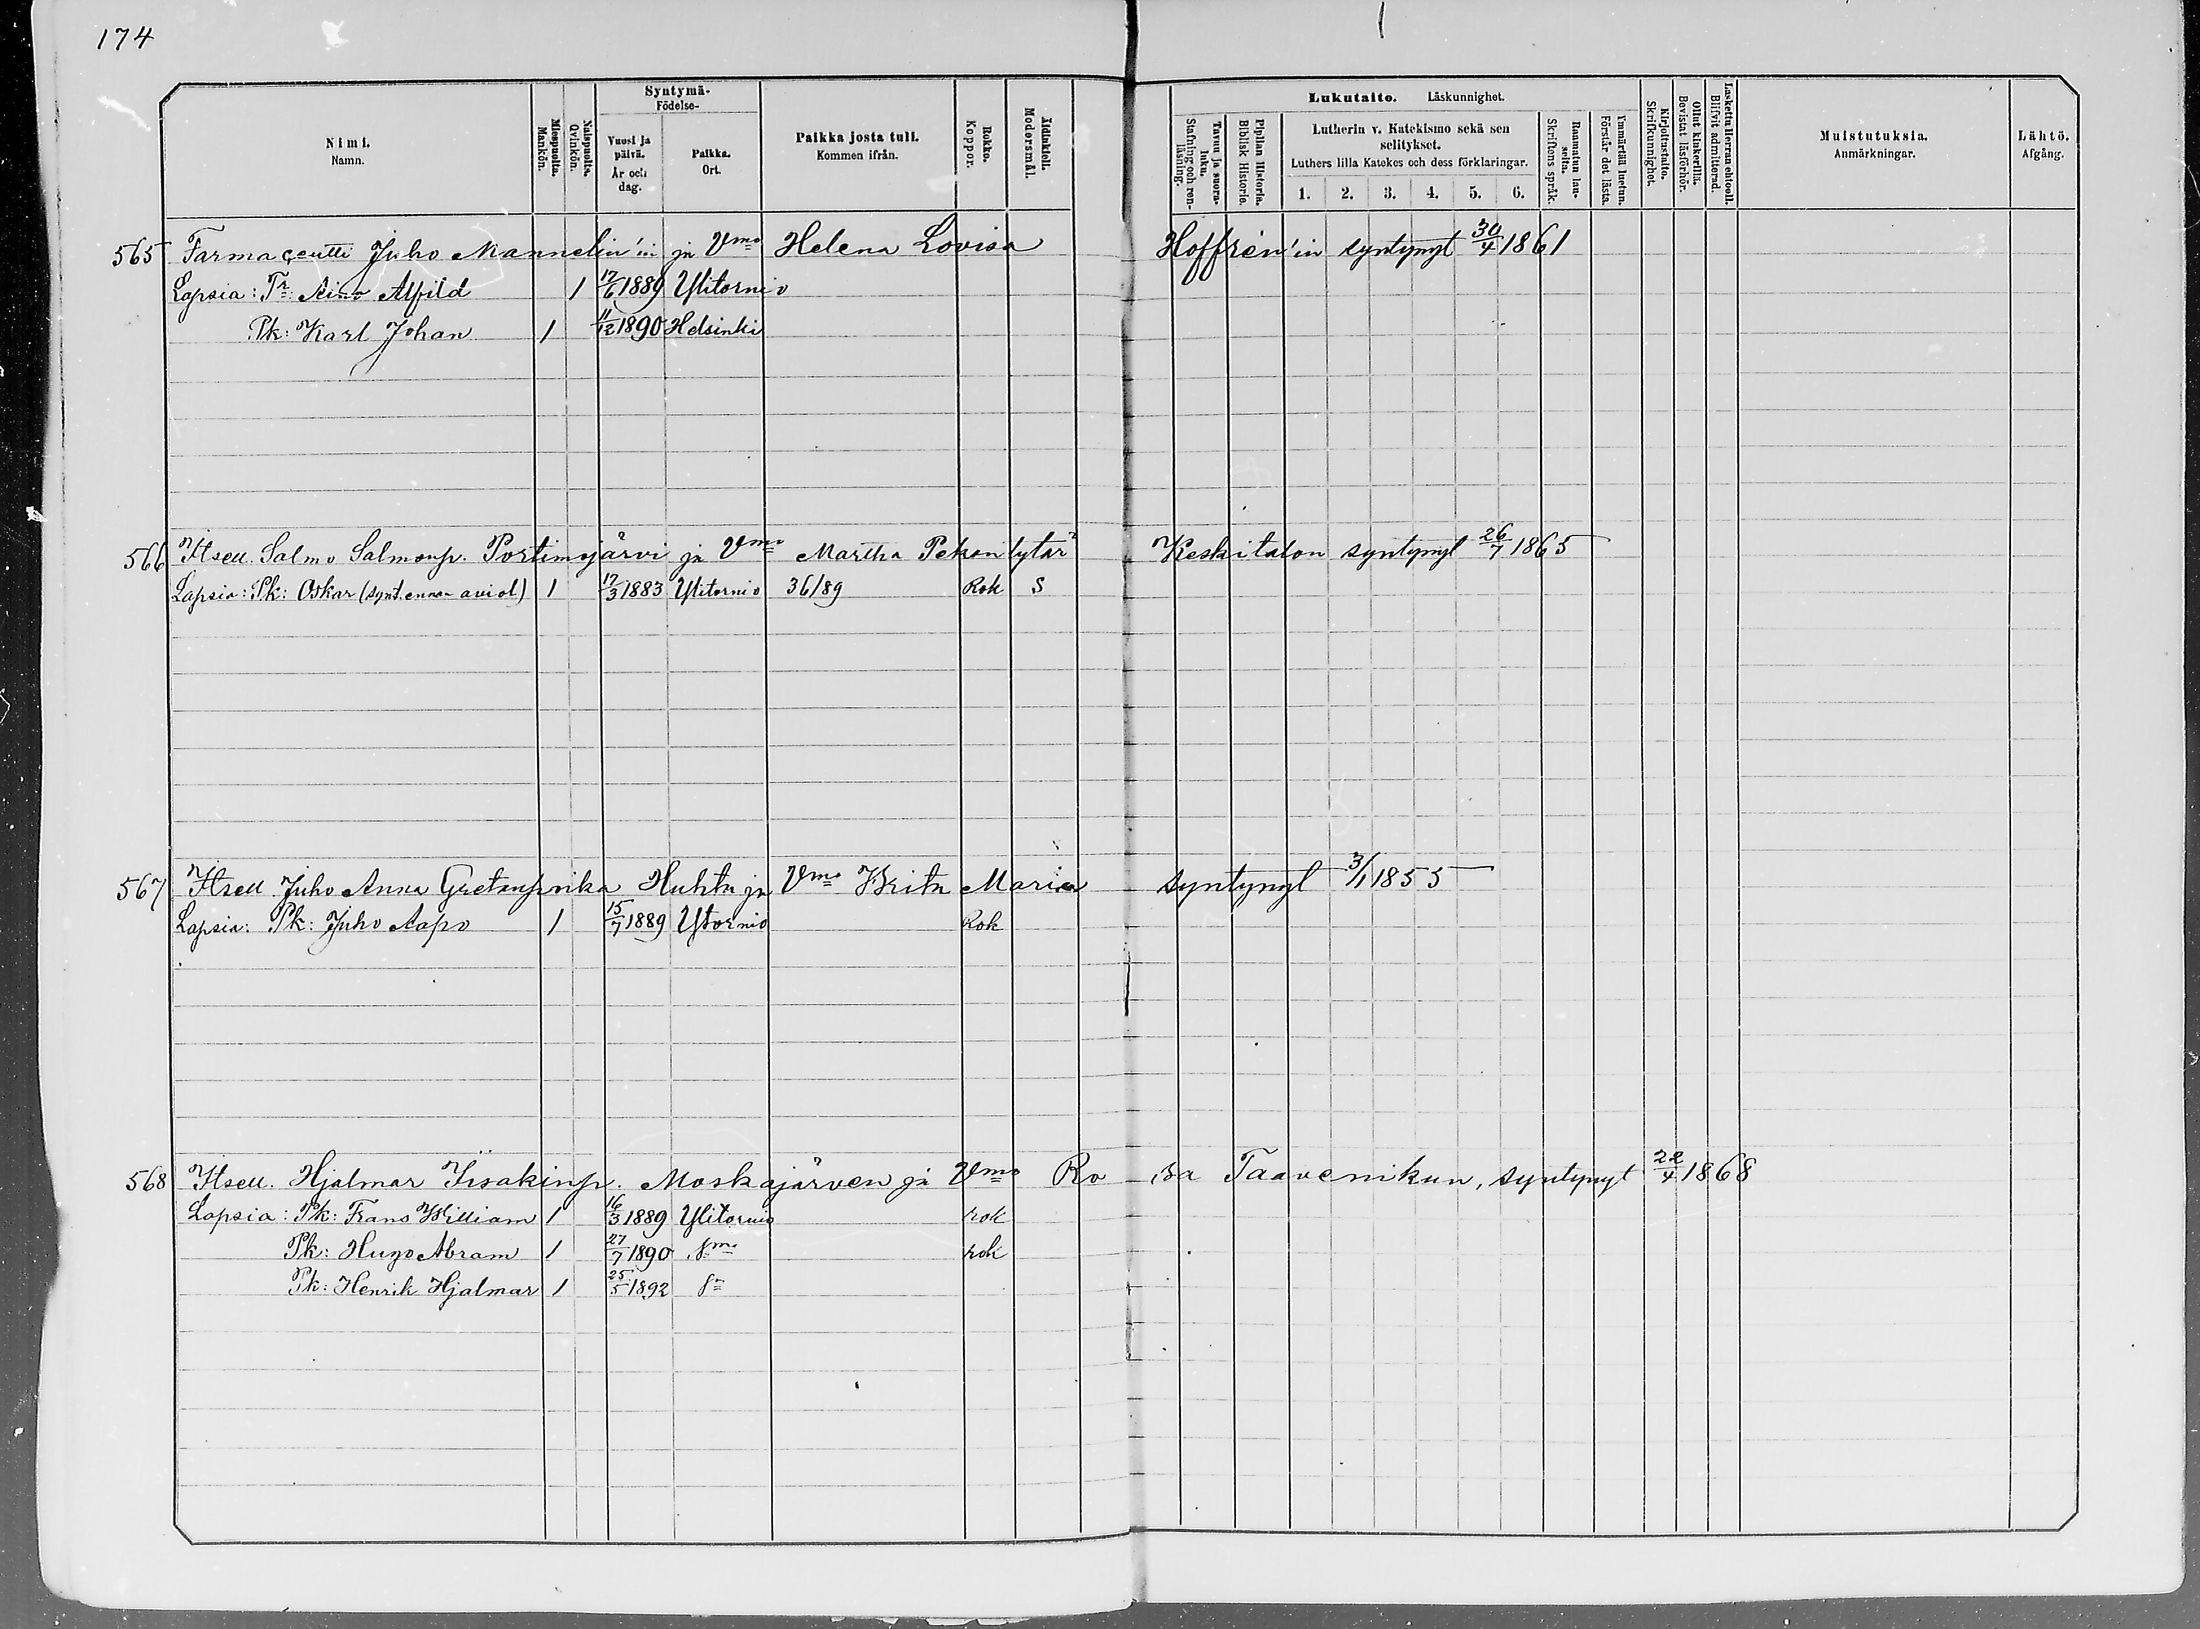 174
Nimi.
Namn.
Miespuolia.
Mankön.
Naispuolia.
Qvinkön.
Syntymä-
Födelse-
Vuosi ja
päivä.
År och
dag.
Paikka.
Ort.
Paikka josta tuli.
Kommen ifrån.
Rokko.
Koppor.
Äidinkieli.
Modersmål.
Lukutaito. Läskunnighet.
Tavuu ja suora-
luku.
Stafning och ren-
läsning.
Piplian Historia.
Biblisk Historie.
Lutherin v. Katekismo sekä sen
selitykset.
Luthers lilla Katekes och dess förklaringar.
1. 2. 3. 4. 5. 6.
Raamatun lau-
seita.
Skriftens språk.
Ymmärtää luetun.
Förstår det lästa.
Kirjoitustaito.
Skrifkunnighet.
Ollut kinkerillä.
Bevistat läsförhör.
Laskettu Herran ehtooll.
Blifvit admitterad.
Muistutuksia.
Anmärkningar.
Lähtö.
Afgång.
565 Farmaçeutti Juho Mannelin'in ja Vmo Helena Lovisa Hoffrén'in syntynyt 30/4 1861
Lapsia: Tr: Aino Alfild 1 17/6 1889 Ylitornio
Pk: Karl Johan 1 11/12 1890 Helsinki
566 Itsell. Salmo Salmonp. Portimojärvi ja Vmo Martha Pekantytär Keskitalon syntynyt 26/7 1865
Lapsia: Pk: Oskar (synt. ennen aviol) 1 17/3 1883 Ylitornio 36/89 Rok S
567 Itsell Juho Anna Gretanp. vika Huhta ja Vmo Brita Maria syntynyt 3/1 1855
Lapsia: Pk: Juho Aapo 1 15/7 1889 Ytornio Rok
568 Itsell. Hjalmar Iisakinp. Moskajärven ja Vmo Ro sa Taavenikun, syntynyt 22/4 1868
Lapsia: Pk: Frans William 1 16/3 1889 Ylitornio rok
Pk: Hugo Abram 1 27/7 1890 Smo rok
Pk: Henrik Hjalmar 1 25/5 1892